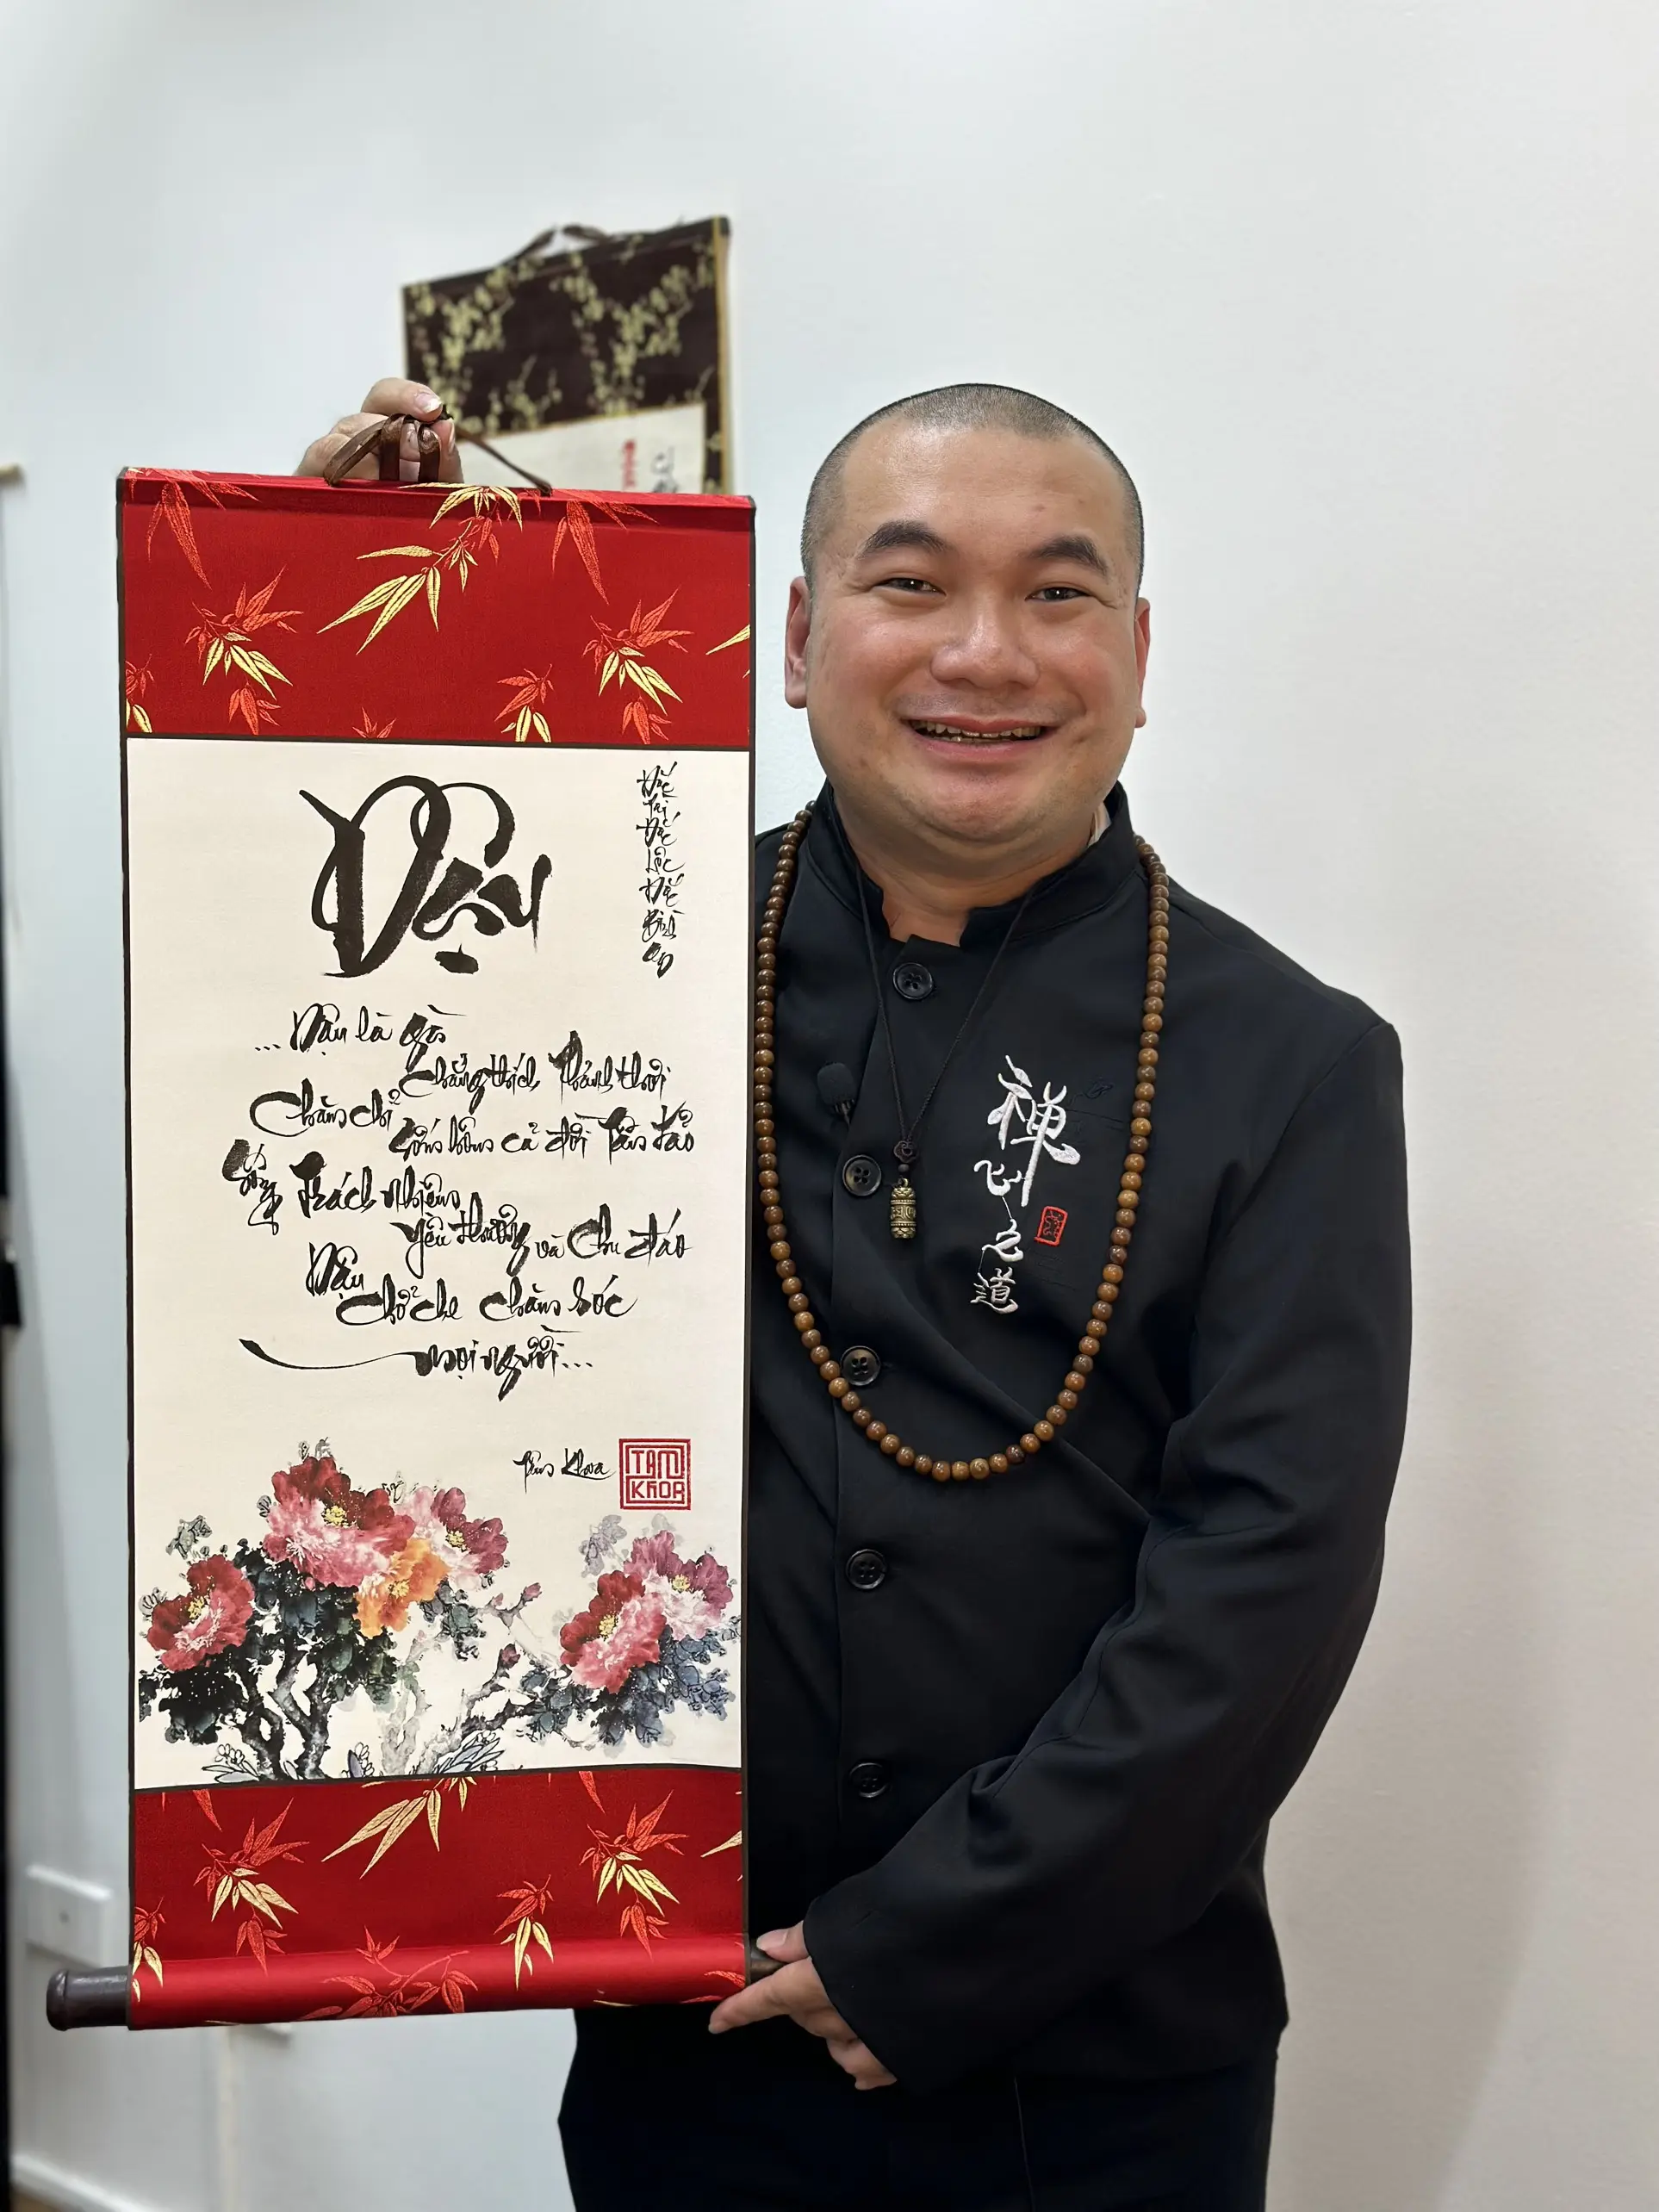 Dậu
Đắc
Tài
Đắc
Lộc
Đắc
Bình
an
...Dậu là gì
Chẳng thích Thảnh thơi
Chăm chỉ
Cống hiến cả đời Tâm
Sống Trách nhiệm
yêu thương và Chu đáo
Dậu
Chở che chăm sóc
mọi người...
Tâm Khoa
TAM
KHOA
禅
心
之
道